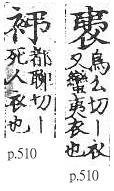 烏么切丨衣
又蠻夷衣也
p.510
都聊切丨
死人衣也
p.510